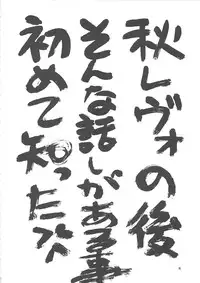 秋レヴォの後
そんな話しがある事
初めて知ったバイ